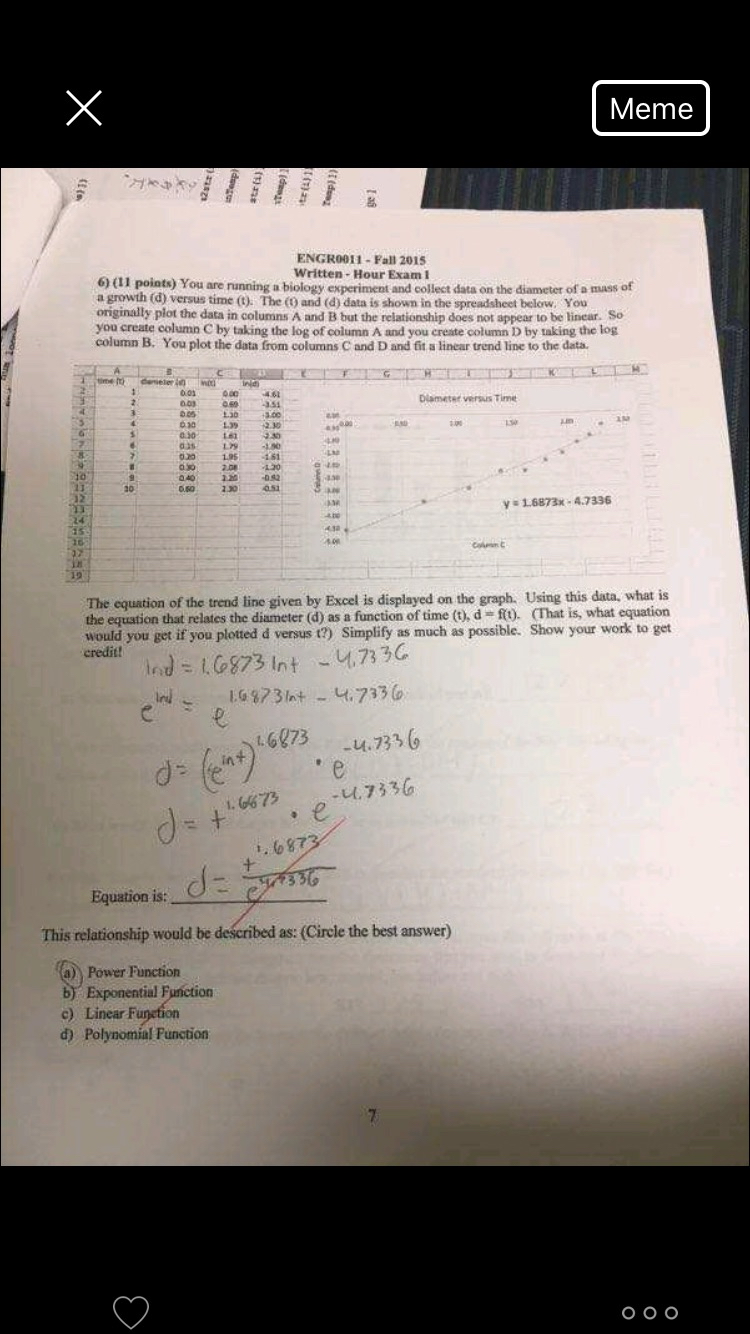 Meme
ge 1
ENGR0011 - Fall 2015
Written - Hour Exam 1
6) (11 points) You are running a biology experiment and collect data on the diameter of a mass of
a growth (d) versus time (t). The (t) and (d) data is shown in the spreadsheet below. You
originally plot the data in columns A and B but the relationship does not appear to be linear. So
you create column C by taking the log of column A and you create column D by taking the log
column B. You plot the data from columns C and D and fit a linear trend line to the data.
A B C E F G H I J K L M
1 time (t) diameter (d) ln(t) ln(d)
2 1 0.01 0.00 -4.61
3 2 0.03 0.69 -3.51
4 3 0.05 1.10 -3.00
5 4 0.10 1.39 -2.30
6 5 0.10 1.61 -2.30
7 6 0.15 1.79 -1.90
8 7 0.20 1.95 -1.61
9 8 0.30 2.08 -1.20
10 9 0.40 2.20 -0.92
11 10 0.60 2.30 -0.51
12
13
14
15
16
17
18
19
Diameter versus Time
0.00 0.50 1.00 1.50 2.00 2.50
0.00
-0.50
-1.00
-1.50
-2.00
-2.50
-3.00
-3.50
-4.00
-4.50
-5.00
Column D
y = 1.6873x - 4.7336
Column C
The equation of the trend line given by Excel is displayed on the graph. Using this data, what is
the equation that relates the diameter (d) as a function of time (t), d = f(t). (That is, what equation
would you get if you plotted d versus t?) Simplify as much as possible. Show your work to get
credit!
lnd = 1.6873 lnt - 4.7336
e^lnd = e^1.6873 lnt - 4.7336
d = (e^lnt)^1.6873 • e^-4.7336
d = t^1.6873 • e^-4.7336
Equation is: d = t^1.6873 / e^4.7336
This relationship would be described as: (Circle the best answer)
a) Power Function
b) Exponential Function
c) Linear Function
d) Polynomial Function
7